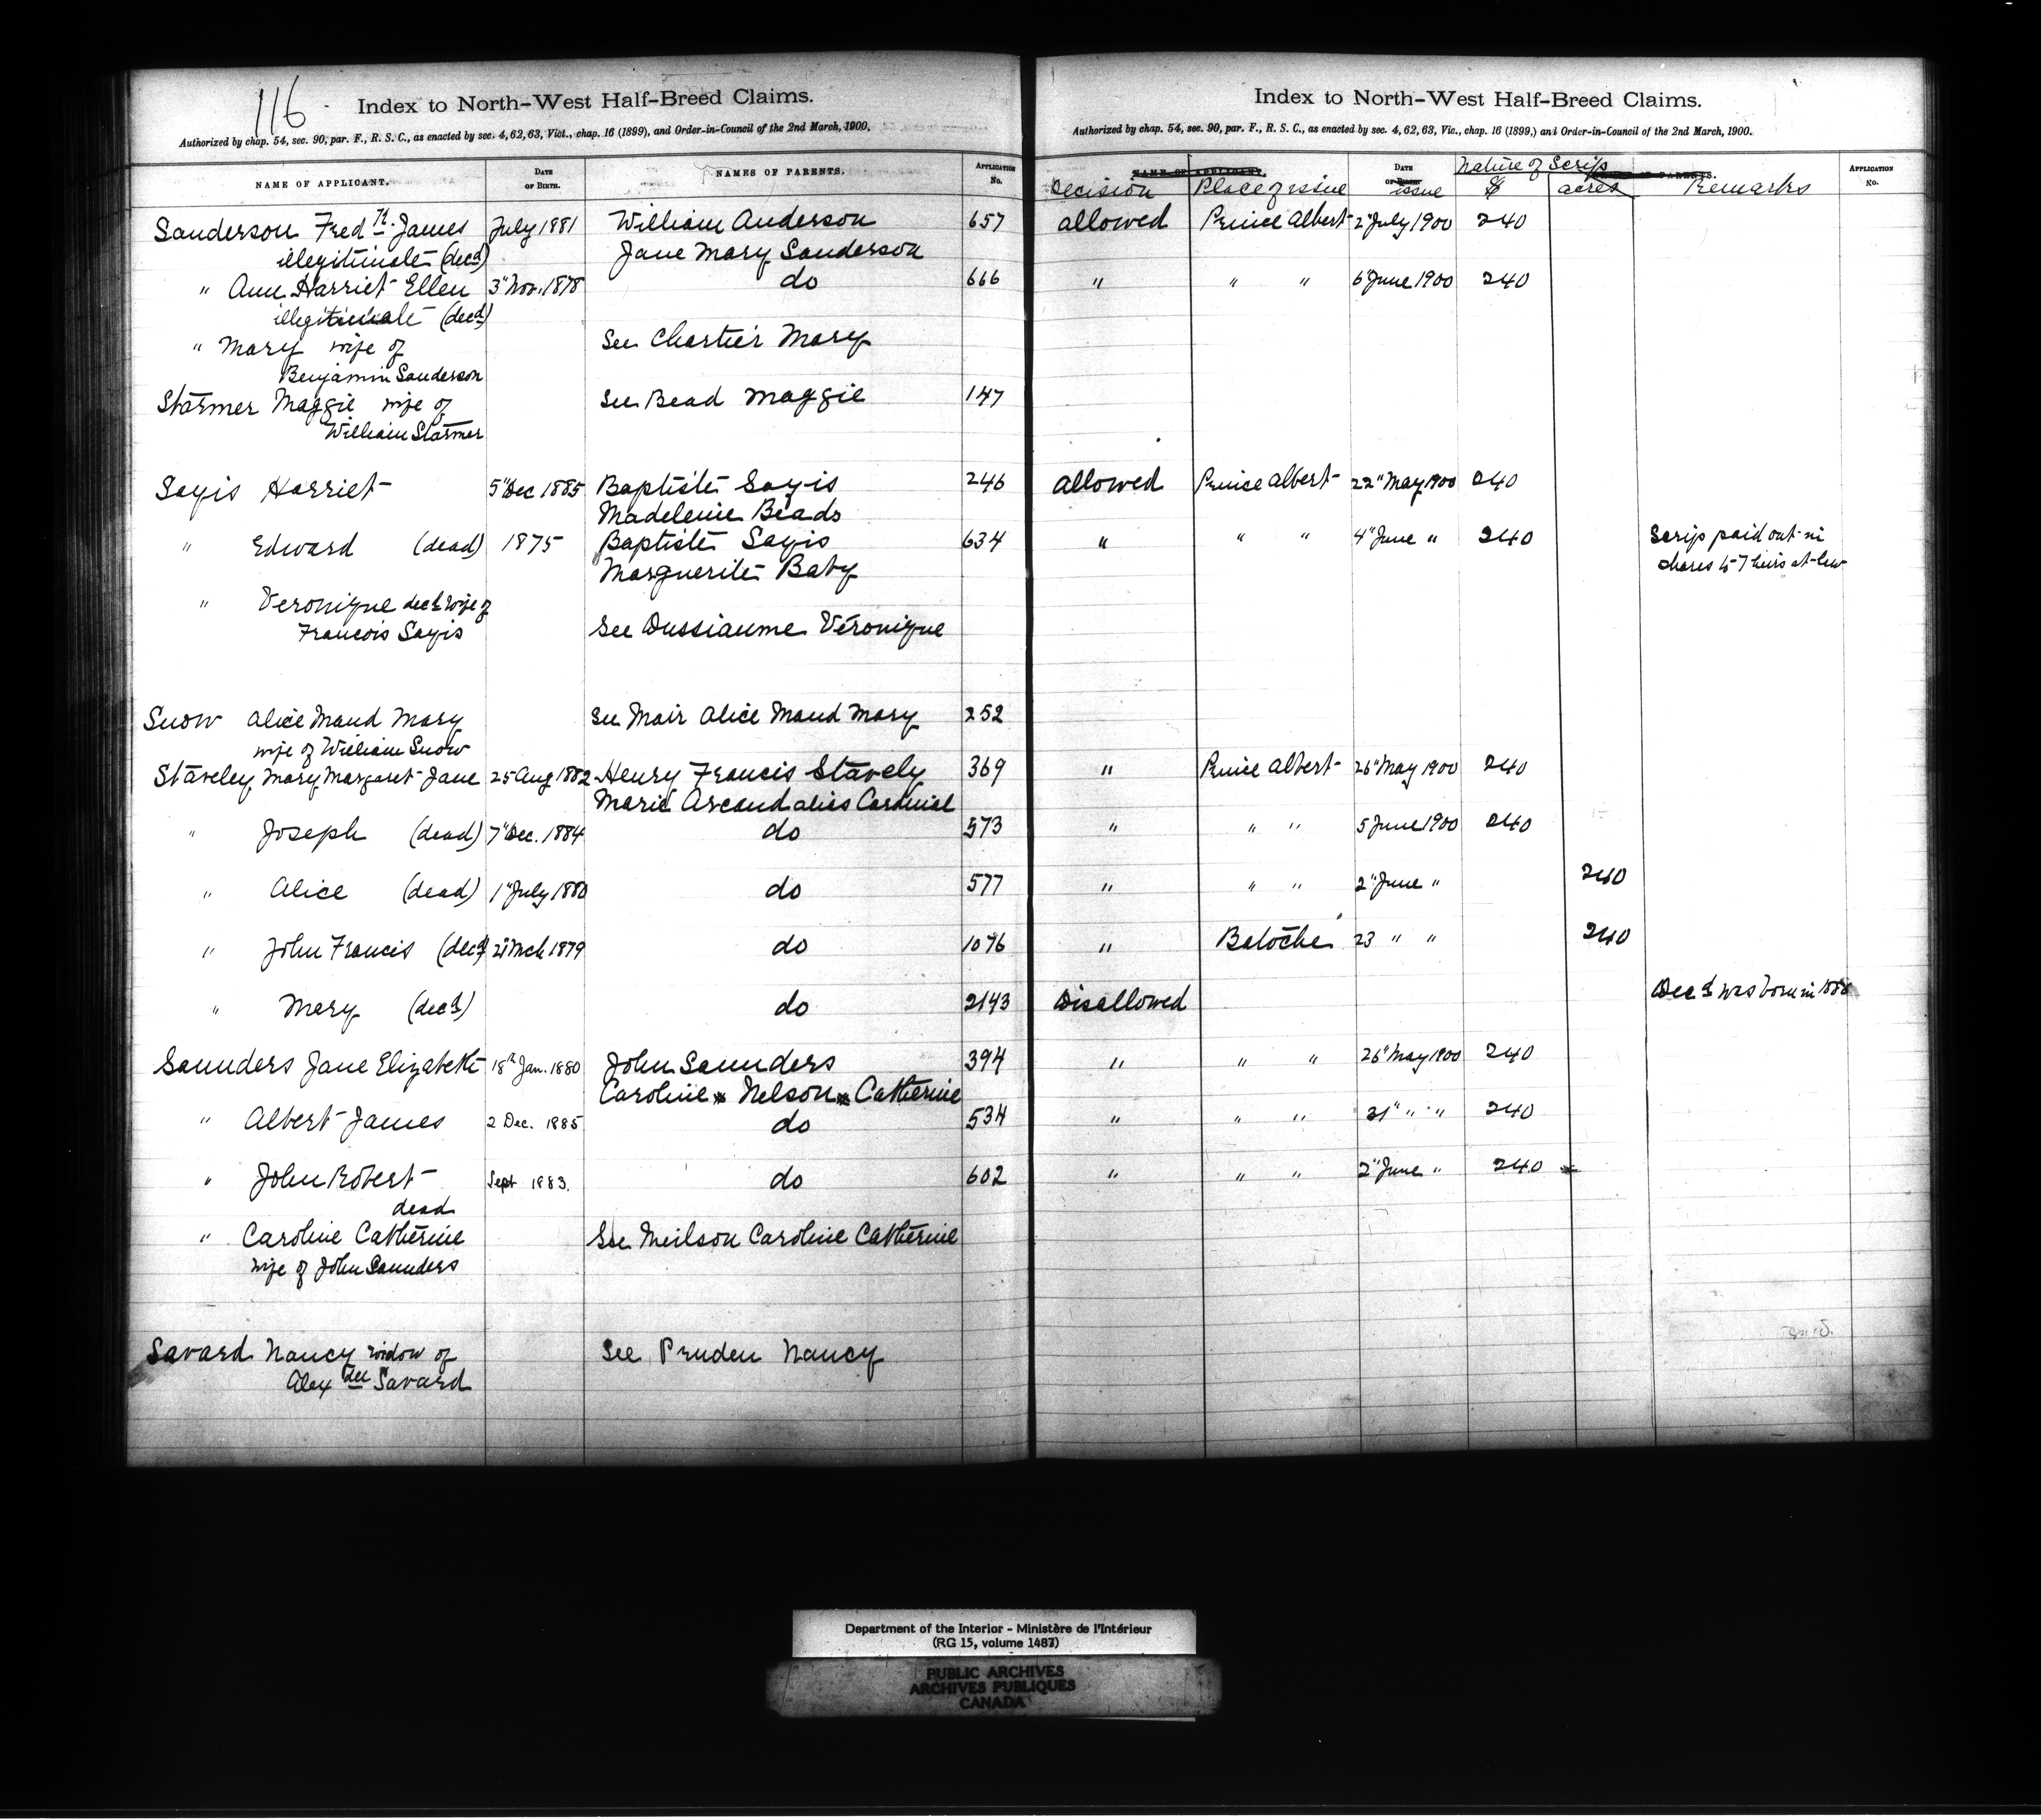 116
Index to North-West Half-Breed Claims.
Authorized by chap. 54, sec. 90, par. F., R. S. C., as enacted by sec. 4, 62, 63, Vict., chap. 16 (1899), and Order-in-Council of the 2nd March, 1900.
NAME OF APPLICANT. DATE OF BIRTH. NAMES OF PARENTS. APPLICATION No.
Sanderson Fredk. James July 1881 William Anderson 657
illegitimate (decd) Jane Mary Sanderson
" Ann Harriet Ellen 3" Nov. 1878 do 666
illegitimate (decd)
" Mary wife of See Chartier Mary
Benjamin Sanderson
Starmer Maggie wife of See Bead Maggie 147
William Starmer
Sayis Harriet 5" Dec 1885 Baptiste Sayis 246
Madeleine Beads
" Edward (dead) 1875 Baptiste Sayis 634
Marguerite Baty
" Veronique decd wife of
Francois Sayis See Dussiaume Véronique
Snow Alice Maud Mary See Mair Alice Maud Mary 252
wife of William Snow
Staveley Mary Margaret Jane 25 Aug 1882 Henry Francis Stavely 369
Marie Arcand alias Cardinal
" Joseph (dead) 7" Dec. 1884 do 573
" Alice (dead) 1" July 1880 do 577
" John Francis (decd) 21" Mch 1879 do 1076
" Mary (decd) do 2143
Saunders Jane Elizabeth 18th Jan. 1880 John Saunders 394
Caroline Nelson Catherine
" Albert James 2 Dec. 1885 do 534
" John Robert Sept 1883. do 602
dead
" Caroline Catherine See Neilson Caroline Catherine
wife of John Saunders
Savard Nancy widow of See Pruden Nancy
Alexdre Savard
Index to North-West Half-Breed Claims.
Authorized by chap. 54, sec. 90, par. F., R. S. C., as enacted by sec. 4, 62, 63, Vic., chap. 16 (1899,) and Order-in-Council of the 2nd March, 1900.
NAME OF APPLICANT. DATE OF BIRTH. NAMES OF PARENTS. APPLICATION No.
Nature of Scrip
Decision Place of issue issue $ acres Remarks
allowed Prince Albert 2" July 1900 240
" " " 6" June 1900 240
allowed Prince Albert 22" May 1900 240
" " " 4" June " 240 Scrip paid out in
shares to 7 heirs at-law
" Prince Albert 26" May 1900 240
" " " 5 June 1900 240
" " " 2" June " 240
" Batoche 23 " " 240
Disallowed Decd was born in
" " " 26" May 1900 240
" " " 31" " " 240
" " " 2" June " 240
Department of the Interior - Ministère de l'Intérieur
(RG 15, volume 1487)
PUBLIC ARCHIVES
ARCHIVES PUBLIQUES
CANADA